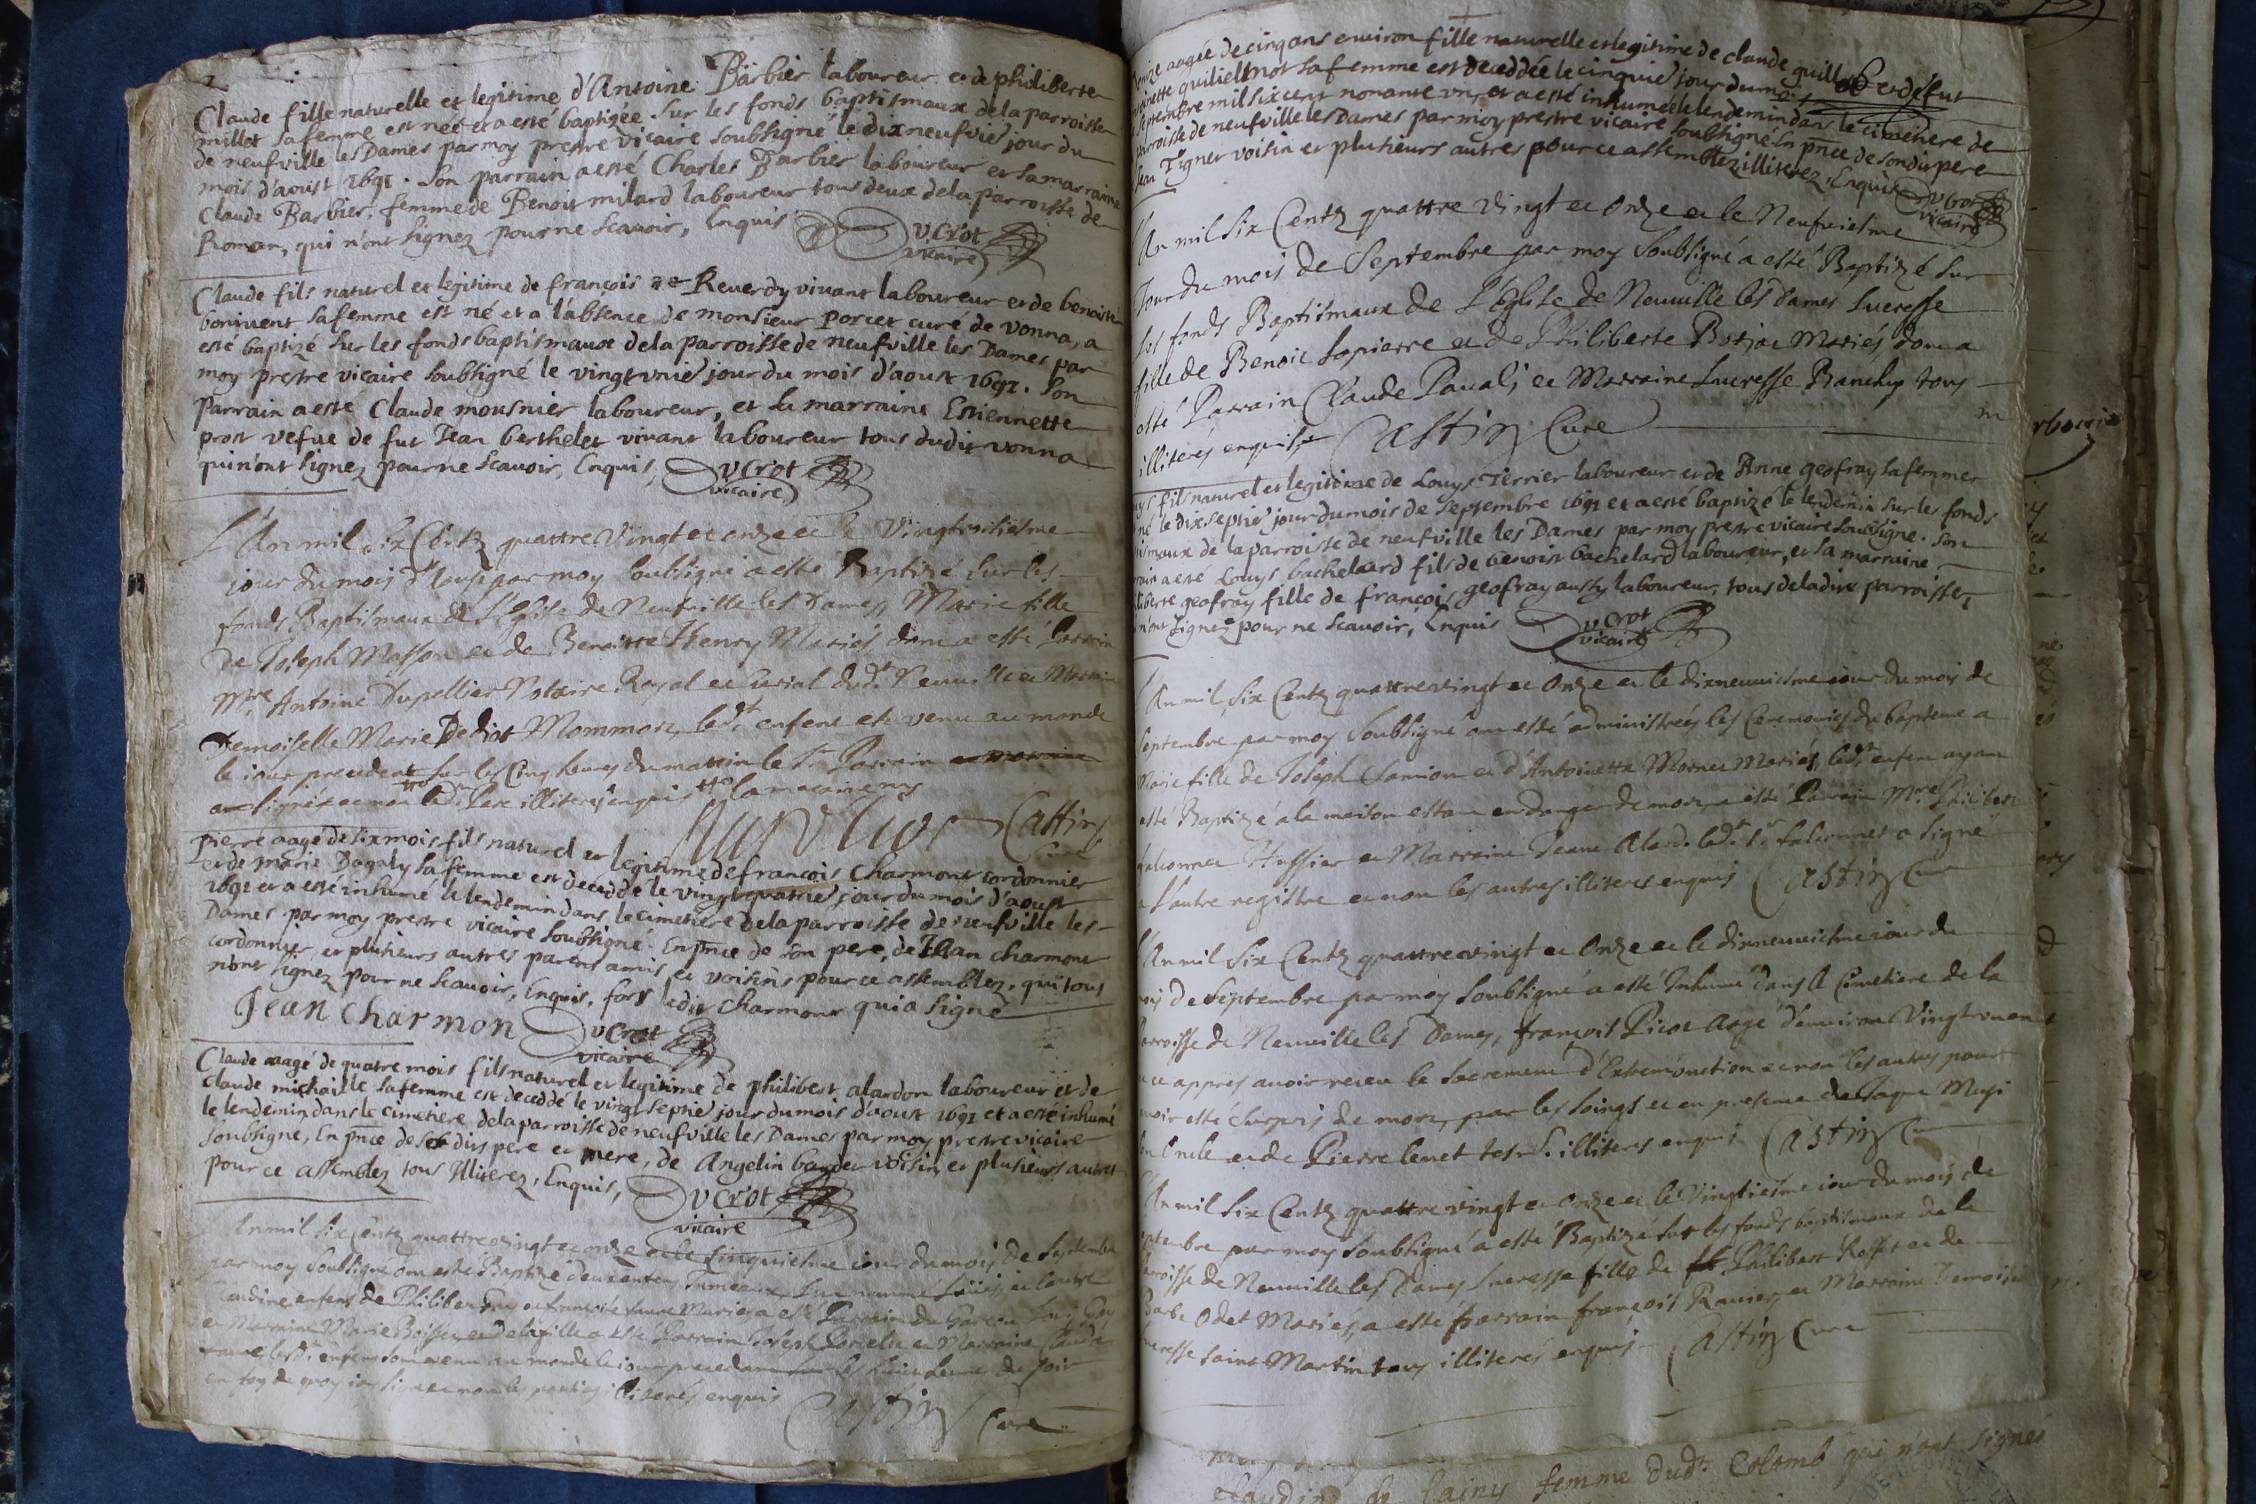 Claude fille naturelle et legitime d'Antoine Barbier laboureur et de philiberte
millet sa femme est née et a esté baptizée sur les fonds baptismaux de la parroisse
de neufville les Dames par moy prestre vicaire soubsigné le dix neufvie jour du
mois d'aoust 1691. Son parrain a esté Charles Barbier laboureur et sa marraine
Claude Barbier, femme de Benoit milard laboureur tous deux de la parroisse de
Roman, qui n'ont signez pour ne scavoir, Enquis
vcrot
vicaire
Claude fils naturel et legitime de françois Reverdy vivant laboureur et de benoiste
bonivent sa femme est né et a l'absence de monsieur porcet curé de vonna, a
esté baptizé sur les fonds baptismaux de la parroisse de neufville les Dames par
moy prestre vicaire soubsigné le vingt vnie jour du mois d'aoust 1691. Son
parrain a esté Claude mousnier laboureur, et sa marraine Estiennette
prost vefue de fut Jean berthelet vivant laboureur tous dudit vonna
qui n'ont signez pour ne scavoir, Enquis,
vcrot
vicaire
L'An mil six Centz quattre Vingt et onze et le
jour du mois d'Aoust par moy soubsigné a esté Baptizé sur les
fonds Baptismaux de l'Eglise de Neufville les Dames, Marie fille
de Joseph Masson et de Benoitte Henry Mariés dont a esté Parrain
Mre Antoine Dupellier Notaire Royal et Curial dudt Neuville et Marraine
Demoiselle Marie De Mommor, ledt enfent est venu au monde
le iour precedent sur les Cinq heures du mattin le Sr Parrain
signéz et non le dt Pere illiteré enquis la maraine
Castin
Curé
pierre aagé de six mois fils naturel et legitime de françois Charmont cordonnier
et de marie Dagaly sa femme est decedde le vingt quatrie jour du mois d'aoust
1691 et a esté inhumé le lendemin dans le cimetiere de la parroisse de neufville les
Dames par moy prestre vicaire soubsigné. En pnce de son pere, de Jean charmont
cordonnier, et plusieurs autres parens amis et voisins pour ce assemblez, qui tous
n'ont signez pour ne scavoir, Enquis, fors ledit Charmont qui a signé
Jean Charmon
vcrot
vicaire
Claude aagé de quatre mois fils naturel et legitime de philibert alardon laboureur et de
claude michaille sa femme est decedde le vingt septie jour du mois d'aoust 1691 et a esté inhumé
le lendemin dans le cimetiere de la parroisse de neufville les Dames par moy prestre vicaire
soubsigné, En pnce de sesdits pere et mere, de Angelin voisin et plusieurs autres
pour ce assemblez tous Illiterez, Enquis,
vcrot
vicaire
L'An mil six Centz quattrevingt et onze et le Cinquiesme iour du mois de Septembre
par moy soubsigné ont esté Baptizé deux enfens Jumeaux l'un nomme Loüis, et l'autre
Claudine enfens de Philibert Guy et françoise faure Mariez, a esté Parrain du Garcon Loüis Guy
et Marraine Marie et de la fille a esté Parrain Joseph et Marraine Clauda
faure, lesdt enfens sont venu au monde le iour precedant sur les huict heures du soir
en foy de quoy iay signé et non les parties illiterés enquis
Castin Curé
aagée de cinq ans environ fille naturelle et legitime de claude quilliet et de fut
quilielmot sa femme est decedée le cinquie jour du mois
de septembre mil six cent nonante vn, et a esté inhumée le lendemin dans le cimetiere de
parroisse de neufville les Dames par moy prestre vicaire soubsigné En pnce de sondit pere
Jean Tigner voisin et plusieurs autres pour ce assemblez illiterez, Enquis
vcrot
vicaire
L'An mil six Centz quattre vingt et onze et le Neufuiesme
Jour du mois de Septembre par moy Soubsigné a esté Baptizé sur
les fonds Baptismaux de l'Eglise de Neuuille les Dames Lucresse
fille de Benoit Lapierre et de Philiberte Mariés, dont a
esté Parrain Claude et Marraine Lucresse tous
illiterés enquis Castin Curé
Louys fils naturel et legitime de Louys Terrier laboureur et de Anne geofray sa femme
né le dix septie jour du mois de septembre 1691 et a esté baptizé le lendemin sur les fonds
baptismaux de la parroisse de neufville les Dames par moy prestre vicaire soubsigné. Son
parrain a esté Louys bachelard fils de benoist bachelard laboureur, et sa marraine
philiberte geofray fille de françois geofray aussy laboureur, tous de la dite parroisse,
n'ont signez pour ne scavoir, Enquis
vcrot
vicaire
L'An mil six Centz quattrevingt et Onze et le dixneuuiesme iour du mois de
septembre par moy Soubsigné ont esté administréés les Ceremonies du bapteme a
Marie fille de Joseph et d'Antoinette Mornet Mariés, ledt enfen ayant
esté Baptizé a la maison estant en danger de mort, a esté Parrain Mre Philibert
falconnet Huissier et Marraine Jeane Alard. Ledt Sr falconnet a signé
a l'autre registre et non les autres illiteres enquis Castin Curé
L'An mil six Centz quattrevingt et Onze et le dixneuuiesme iour du
mois de Septembre par moy soubsigné a esté Inhumé dans le Cimetiere de la
parroisse de Neuuille les Dames, françois Picot aagé d'enuiron Vingt vn
et ce appres auoir receu le Sacrement d'Extremonction et non les autres pour
auoir esté surpris de mort, par les soings et en presence de Jaque
son oncle et de Pierre illiteres enquis Castin Curé
L'An mil six Centz quattre vingt et onze et le Vingtiesme iour du mois de
septembre par moy soubsigné a esté Baptizé sur les fonds baptismaux de la
parroisse de Neuuille les Dames Lucresse fille de Philibert Rosset et de
Barbe Odet Mariés, a esté parrain françois et Marraine Demoiselle
Lucresse saint Martin tous illiterés enquis Castin Curé
femme dudt Colomb qui n'ont signés